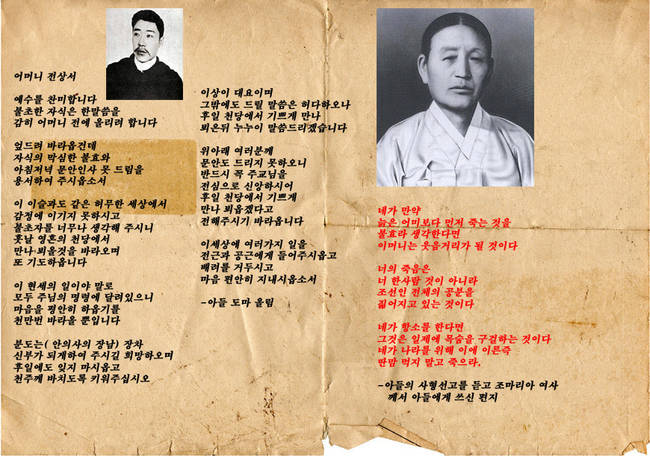 어머니 전상서
예수를 찬미합니다
불초한 자식은 한말씀을
감히 어머니 전에 올리려 합니다
엎드려 바라옵건데
자식의 막심한 불효와
아침저녁 문안인사 못 드림을
용서하여 주시옵소서
이 이슬과도 같은 허무한 세상에서
감정에 이기지 못하시고
불초자를 너무나 생각해 주시니
훗날 영혼의 천당에서
만나 뵈옵을것을 바라오며
또 기도하옵니다
이 현세의 일이야 말로
모두 주님의 명령에 달려있으니
마음을 평안히 하옵기를
천만번 바라올 뿐입니다
분도는( 안의사의 장남) 장차
신부가 되게하여 주시길 희망하오며
후일에도 잊지 마시옵고
천주께 바치도록 키워주십시오
이상이 대요이며
그밖에도 드릴 말씀은 허다하오나
후일 천당에서 기쁘게 만나
뵈온뒤 누누이 말씀드리겠습니다
위아래 여러분께
문안도 드리지 못하오니
반드시 꼭 주교님을
전심으로 신앙하시어
후일 천당에서 기쁘게
만나 뵈옵겠다고
전해주시기 바라옵니다
이세상에 여러가지 일을
전근과 공근에게 들어주시옵고
배려를 거두시고
마음 편안히 지내시옵소서
-아들 도마 올림
네가 만약
늙은 어미보다 먼저 죽는 것을
불효라 생각한다면
이 어머니는 웃음거리가 될 것이다
너의 죽음은
너 한사람 것이 아니라
조선인 전체의 공분을
짊어지고 있는 것이다
네가 항소를 한다면
그것은 일제에 목숨을 구걸하는 것이다
네가 나라를 위해 이에 이른즉
딴맘 먹지 말고 죽으라.
-아들의 사형선고를 듣고 조마리아 여사
께서 아들에게 쓰신 편지